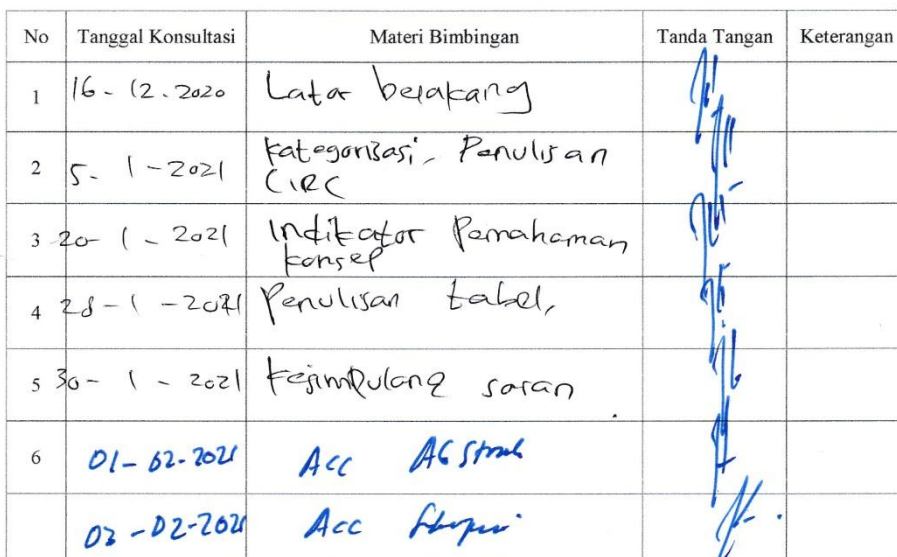 No Tanggal Konsultasi Materi Bimbingan Tanda Tangan Keterangan
1 16-12.2020 Latar belakang
2 5-1-2021 kategorisasi, Penulisan
CIRC
3 20-1-2021 Indikator Pemahaman
konsep
4 28-1-2021 Penulisan tabel,
5 30-1-2021 kesimpulan saran
6 01-02-2021 Acc Abstrak
-02-2021 Acc